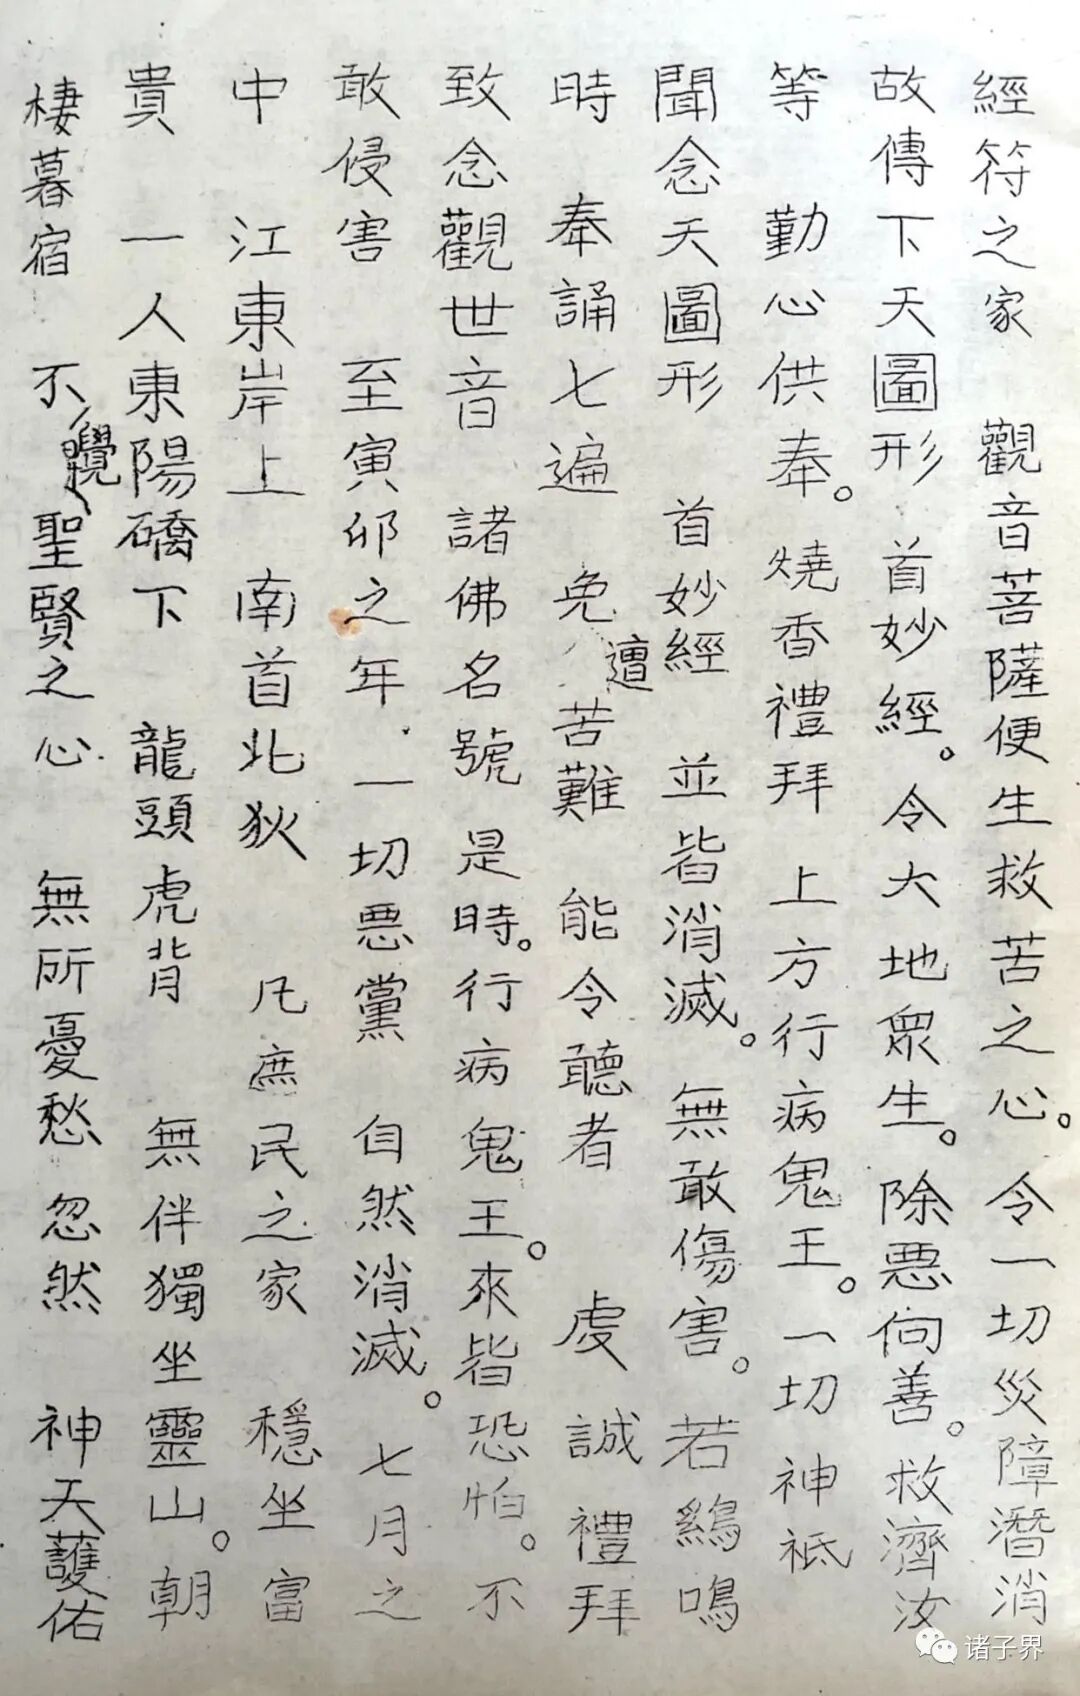 經符之家　觀音菩薩便生救苦之心。令一切災障潛消
故傳下天圖形　首妙經。令大地眾生。除惡向善。救濟汝
等　勤心供奉。燒香禮拜　上方行病鬼王。一切神祇
聞念天圖形　首妙經　並皆消滅。無敢傷害。若鷄鳴
時　奉誦七遍　免遭苦難　能令聽者　虔誠禮拜
致念觀世音　諸佛名號　是時。行病鬼王。來皆恐怕。不
敢侵害　至寅卯之年．一切惡黨　自然消滅。七月之
中　江東岸上　南首北狄　凡庶民之家　穩坐富
貴　一人東陽礄下　龍頭虎背　無伴獨坐靈山。朝
棲暮宿　不覺聖賢之心　無所憂愁　忽然　神天護佑
诸子界